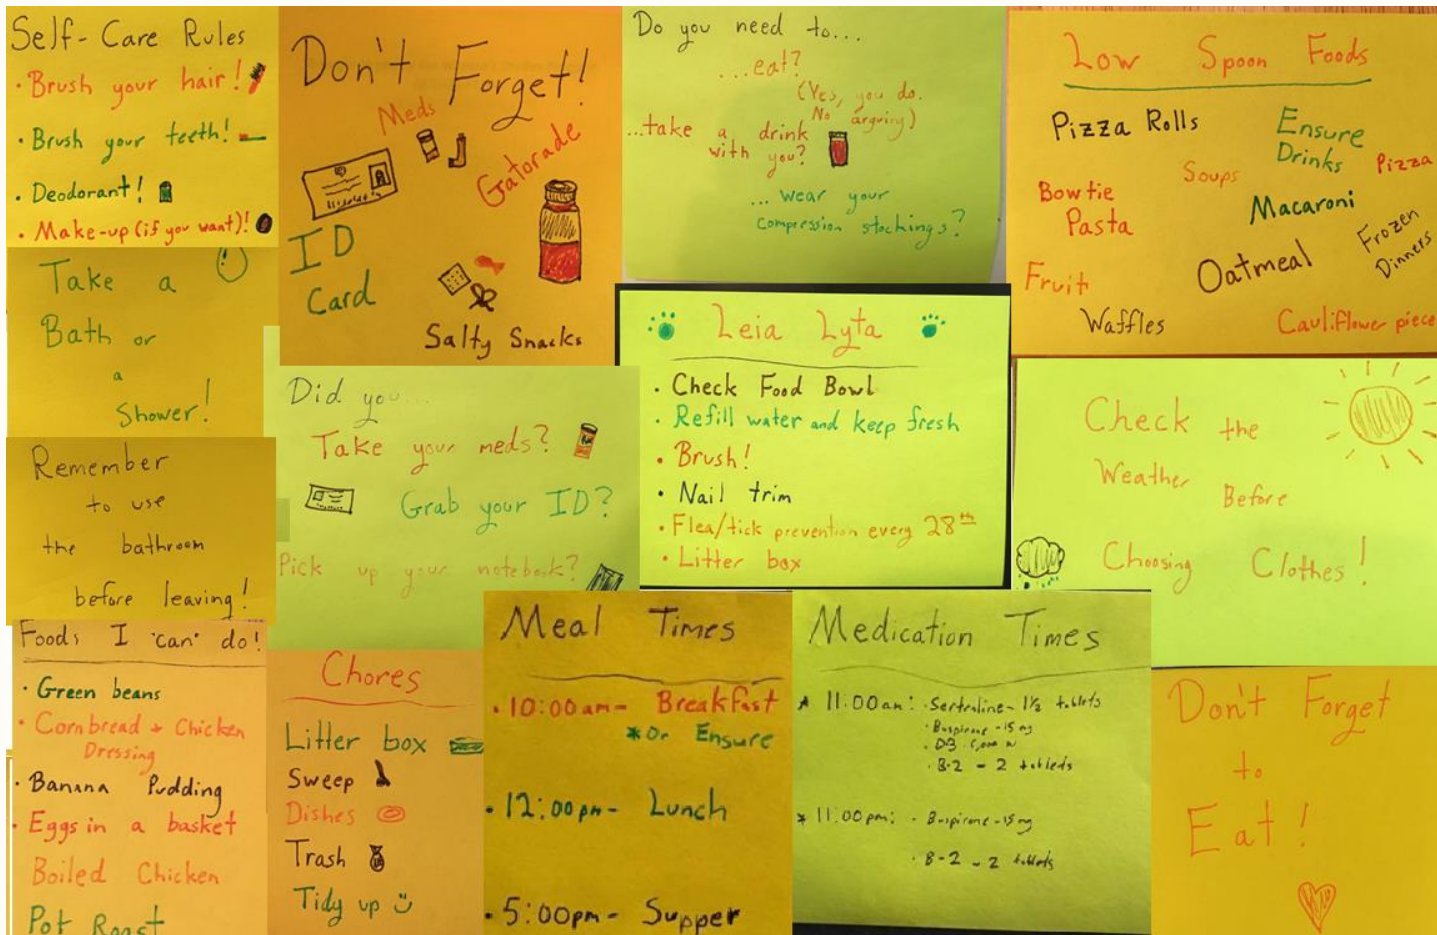 Self-Care Rules
• Brush your hair!
• Brush your teeth!
• Deodorant!
• Make-up (if you want)!
Take a
Bath or
a
Shower!
Remember
to use
the bathroom
before leaving!
Foods I "can" do!
• Green beans
• Cornbread + Chicken
Dressing
• Banana Pudding
• Eggs in a basket
Boiled Chicken
Pot Roast
Don't Forget!
Meds
Gatorade
ID
Card
Salty Snacks
Did you...
Take your meds?
Grab your ID?
Pick up your notebook?
Chores
Litter box
Sweep
Dishes
Trash
Tidy up
Do you need to...
...eat?
(Yes, you do.
No arguing)
...take a drink
with you?
... wear your
compression stockings?
Leia Lyta
• Check Food Bowl
• Refill water and keep fresh
• Brush!
• Nail trim
• Flea/tick prevention every 28th
• Litter box
Meal Times
• 10:00am - Breakfast
*Or Ensure
• 12:00pm - Lunch
• 5:00pm - Supper
Medication Times
* 11:00am: • Sertraline - 1½ tablets
• Buspirone - 15mg
• D3
• B-2 - 2 tablets
* 11:00pm: • Buspirone - 15mg
• B-2 - 2 tablets
Low Spoon Foods
Pizza Rolls
Ensure
Drinks
Pizza
Soups
Bowtie
Pasta
Macaroni
Frozen
Dinners
Oatmeal
Fruit
Waffles
Cauliflower piece
Check the
Weather Before
Choosing Clothes!
Don't Forget
to
Eat!